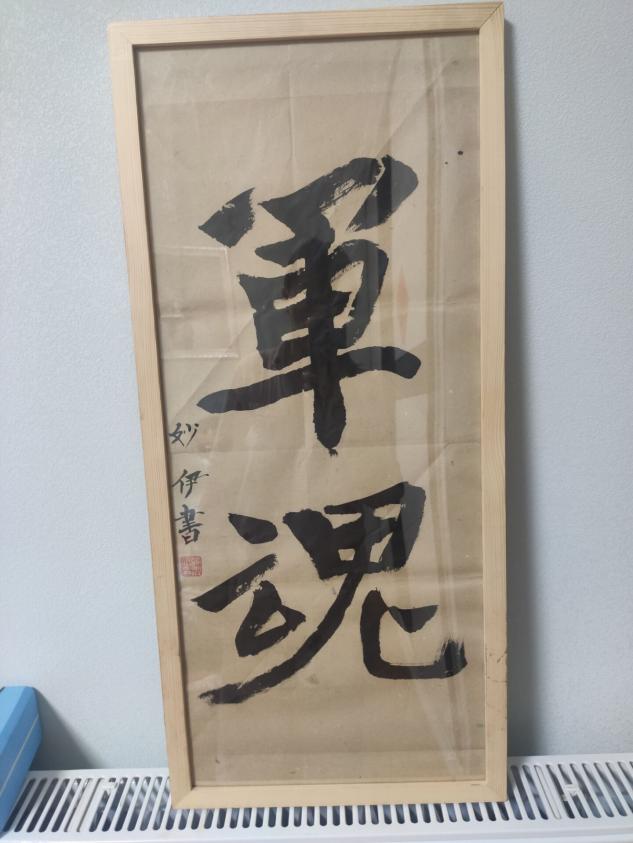 軍魂
妙伊書